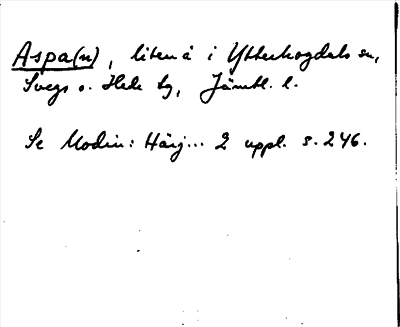 Aspa(n), liten å i Ytterhogdals sn,
Svegs o. Hede tg, Jämtl. l.
Se Modin: Härj... 2 uppl. s. 246.